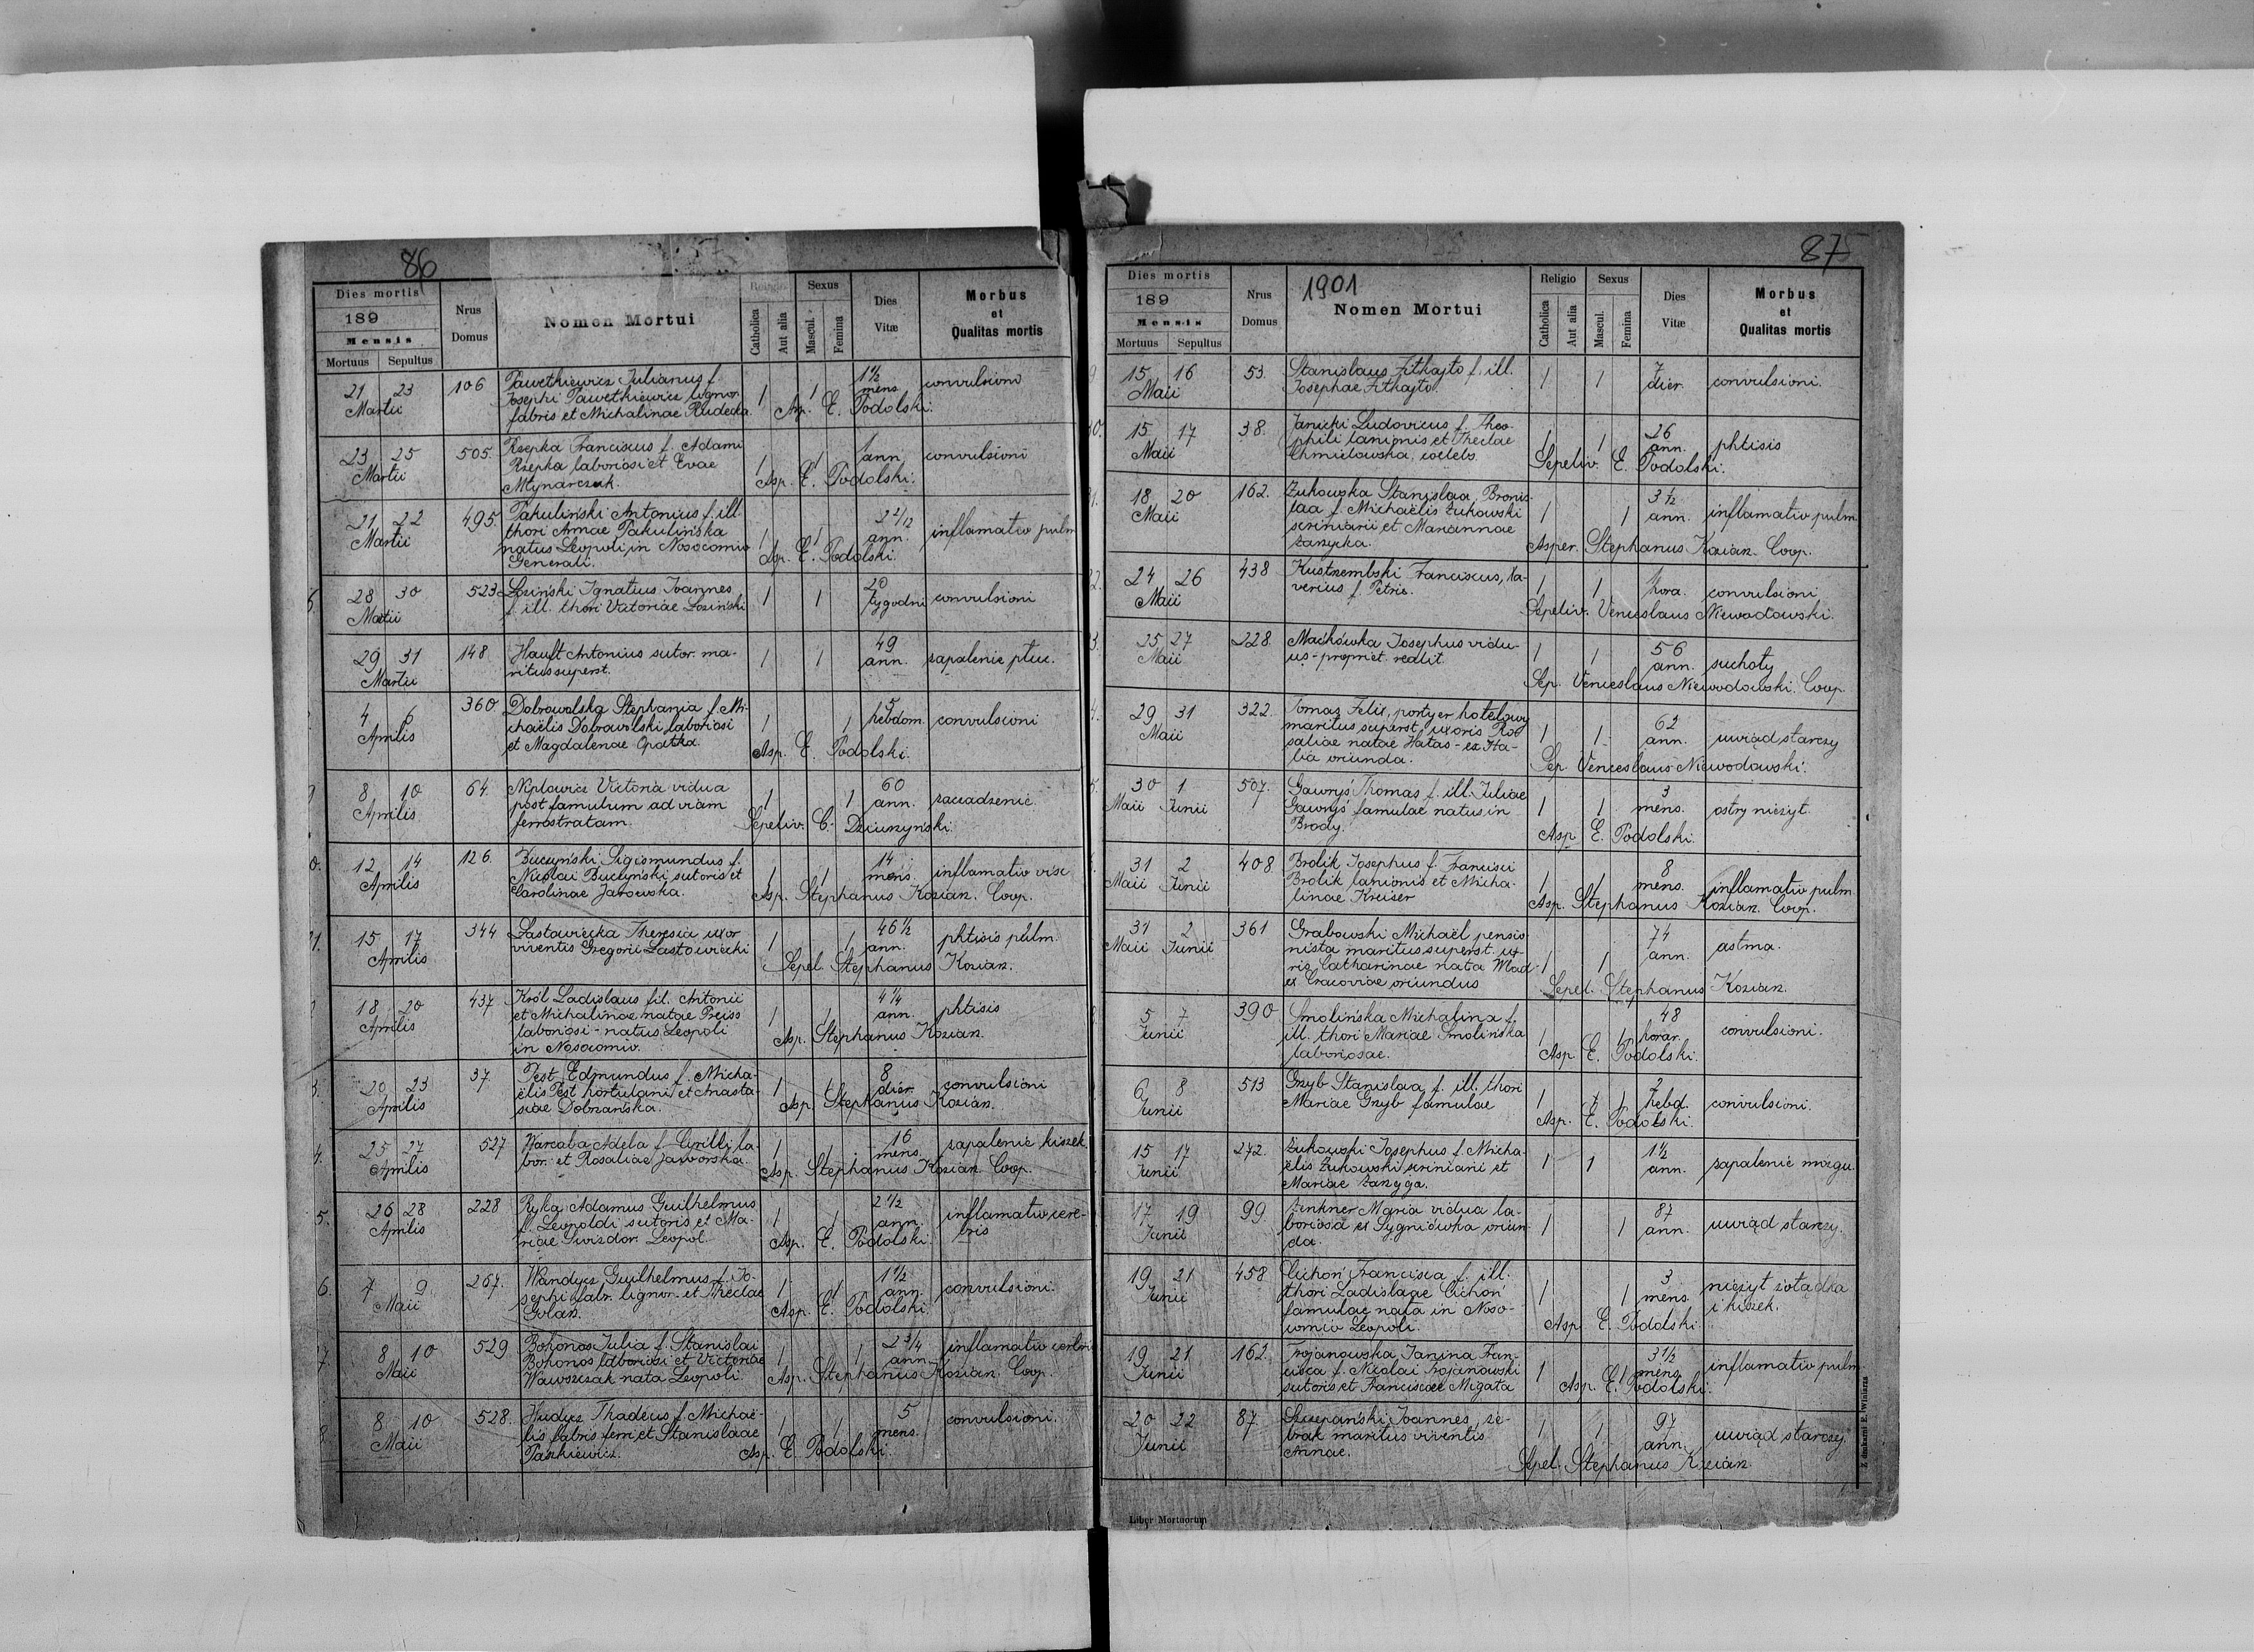 86
Dies mortis
189
Mensis
Mortuus Sepultus
Nrus
Domus
Nomen Mortui
Religio
Catholica
Aut alia
Sexus
Mascul.
Femina
Dies
Vitæ
Morbus
et
Qualitas mortis
21 23 106 Pawetkiewicz Julianus f. 1 1 1½ mens. convulsioni
Martii Josephi Pawetkiewicz lignor.
fabris et Michalinae Rudecka. Asp. E. Podolski.
23 25 505. Rzepka Franciscus f. Adami 1 1 1 ann. convulsioni
Martii Rzepka laboriosi et Evae
Młynarczuk. Asp. E. Podolski.
21 22 495. Pakuliński Antonius f. ill. 1 1 2 2/12 ann. inflamatio pulm
Martii thori Annae Pakulińska
natus Leopoli in Nosocomio Asp. E. Podolski.
Generali.
28 30 523 Łoziński Ignatius Joannes 1 1 20 tygodni convulsioni
Martii f. ill. thori Victoriae Łoziński
29 31 148 Hauft Antonius sutor. ma- 1 1 49 ann. zapalenie płuc.
Martii ritus superst.
4 6 360 Dobrowolska Stephania f. Mi- 1 1 5 hebdom. convulsioni
Aprilis chaëlis Dobrowolski laboriosi
et Magdalenae Opatka. Asp. E. Podolski.
8 10 64. Victoria vidua 1 1 60 ann. zaczadzenie.
Aprilis post famulum ad viam
ferrostratam. Sepeliv. C. Dziurzyński.
12 14 126. Buczyński Sigismundus f. 1 1 14 mens. inflamatio visc
Aprilis Nicolai Buczyński sutoris et
Carolinae Jarowska. Asp. Stephanus Kozian. Coop.
15 17 344 Łastowiecka Theresia uxor 1 1 46½ ann. phtisis pulm.
Aprilis viventis Gregorii Łastowiecki
Sepel. Stephanus Kozian.
18 20 437 Król Ladislaus fil. Antonii 1 1 4¼ ann. phtisis
Aprilis et Michalinae natae Preiss
laboriosi - natus Leopoli Asp. Stephanus Kozian.
in Nosocomio.
20 23 37. Pest Edmundus f. Micha- 1 1 8 dier. convulsioni
Aprilis ëlis Pest hortulani et Anasta-
siae Dobrzańska. Asp. Stephanus Kozian.
25 27 527 Warcaba Adela f. Cirilli la- 1 1 16 mens. zapalenie kiszek.
Aprilis bor. et Rosaliae Jaworska. Asp. Stephanus Kozian. Coop.
26 28 228 Ryka Adamus Guilhelmus 1 1 2½ ann. inflamatio cere-
Aprilis f. Leopoldi sutoris et Ma- bris
riae Gwizdor. Leopol. Asp. E. Podolski.
7 9 267. Wandycz Guilhelmus f. Jo- 1 1 1½ ann. convulsioni.
Maii sephi fabr. lignor. et Theclae
Golan. Asp. E. Podolski
8 10 529 Bohonos Julia f. Stanislai 1 1 2¾ ann. inflamatio
Maii Bohonos laboriosi et Victoriae
Wawszczak nata Leopoli. Asp. Stephanus Kozian. Coop.
8 10 528. Hudycz Thadeus f. Michaë- 1 1 5 mens. convulsioni.
Maii lis fabris ferri et Stanislaae
Paszkiewicz. Asp. E. Podolski.
87
Dies mortis
189
Mensis
Mortuus Sepultus
Nrus
Domus
1901
Nomen Mortui
Religio
Catholica
Aut alia
Sexus
Mascul.
Femina
Dies
Vitæ
Morbus
et
Qualitas mortis
15 16 53. Stanislaus f. ill. 1 1 7 dier. convulsioni.
Maii Josephae
15 17 38. Janicki Ludovicus f. Theo- 1 1 26 ann. phtisis
Maii phili lanionis et Theclae
Chmielowska, coelebs. Sepeliv. E. Podolski.
18 20 162. Żukowska Stanislaa Bronis- 1 1 3½ ann. inflamatio pulm.
Maii laa f. Michaëlis Żukowski
scriniarii et Mariannae
Zazycka. Asper. Stephanus Kozian. Coop.
24 26 438 Kustrzembski Franciscus, Xa- 1 1 1 hora. convulsioni
Maii verius f. Petri. Sepeliv. Venceslaus Niewodowski.
25 27 228 Maćkówka Josephus vidu- 1 1 56 ann. suchoty
Maii us - propriet. realit. Sep. Venceslaus Niewodowski. Coop.
29 31 322. Tomaz Felix, portyer hotelowy 1 1 62 ann. uwiąd starczy
Maii maritus superst. uxoris Ro-
saliae natae Hatas - ex Ita-
lia oriunda. Sep. Venceslaus Niewodowski.
30 1 507. Gawryś Thomas f. ill. Juliae 1 1 3 mens. ostry nieżyt.
Maii Junii Gawryś famulae natus in
Brody. Asp. E. Podolski.
31 2 408. Brolik Josephus f. Francisci 1 1 8 mens. inflamatio pulm.
Maii Junii Brolik lanionis et Micha-
linae Kreiser Asp. Stephanus Kozian. Coop.
31 2 361 Grabowski Michaël pensio- 1 1 74 ann. astma.
Maii Junii nista maritus superst. ux-
ris Catharinae nata Wład
ex Cracoviae oriundus Sepel. Stephanus Kozian.
5 7 390 Smolińska Michalina f. 1 1 48 horar. convulsioni.
Junii ill. thori Mariae Smolińska
laboriosae. Asp. E. Podolski.
6 8 513 Grzyb Stanislaa f. ill. thori 1 1 2 hebd. convulsioni.
Junii Mariae Grzyb famulae
Asp. E. Podolski.
15 17 272. Żukowski Josephus f. Micha- 1 1 1½ ann. zapalenie mózgu.
Junii ëlis Żukowski scriniarii et
Mariae Zazyga.
17 19 99. Zenkner Maria vidua la- 1 1 87 ann. uwiąd starczy.
Junii boriosa ex Sygniówka oriun-
da.
19 21 458 Cichoń Francisca f. ill. 1 1 3 mens. nieżyt żołądka
Junii thori Ladislaae Cichoń i kiszek.
famulae nata in Noso-
comio Leopoli. Asp. E. Podolski.
19 21 162. Trojanowska Janina Fran- 1 1 3½ mens. inflamatio pulm
Junii cisca f. Nicolai Trojanowski
sutoris et Franciscae Migata Asp. E. Podolski.
20 22 87. Szczepański Joannes, że- 1 1 97 ann. uwiąd starczy.
Junii brak maritus viventis
Annae. Sepel. Stephanus Kozian.
Liber Mortuorum
Z drukarni E. Winiarza